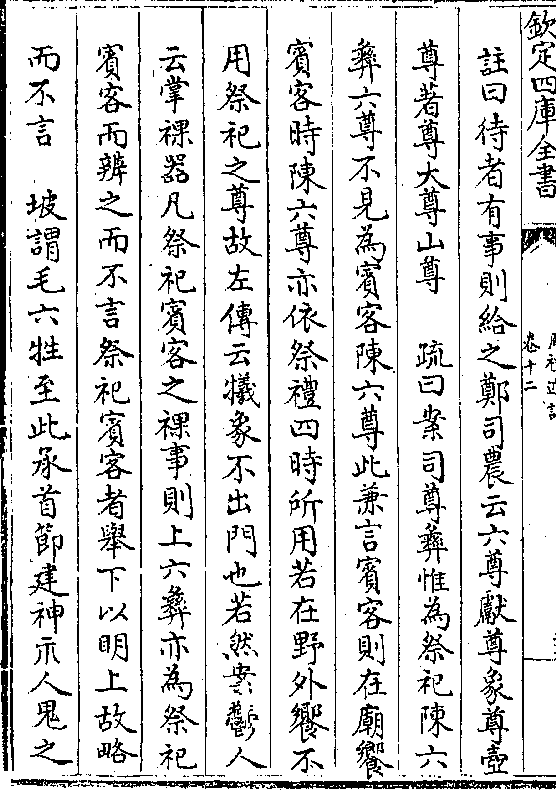 欽定四庫全書
卷十二
註曰待者有事則給之鄭司農云六尊獻尊象尊壺
尊著尊大尊山尊　疏曰案司尊彝惟為祭祀陳六
彝六尊不見為賓客陳六尊此兼言賓客則在廟饗
賓客時陳六尊亦依祭禮四時所用若在野外饗不
用祭祀之尊故左傳云犧象不出門也若然案鬱人
云掌祼器凡祭祀賓客之祼事則上六彝亦為祭祀
賓客而辨之而不言祭祀賓客者舉下以明上故略
而不言　坡謂毛六牲至此承首節建神示人鬼之